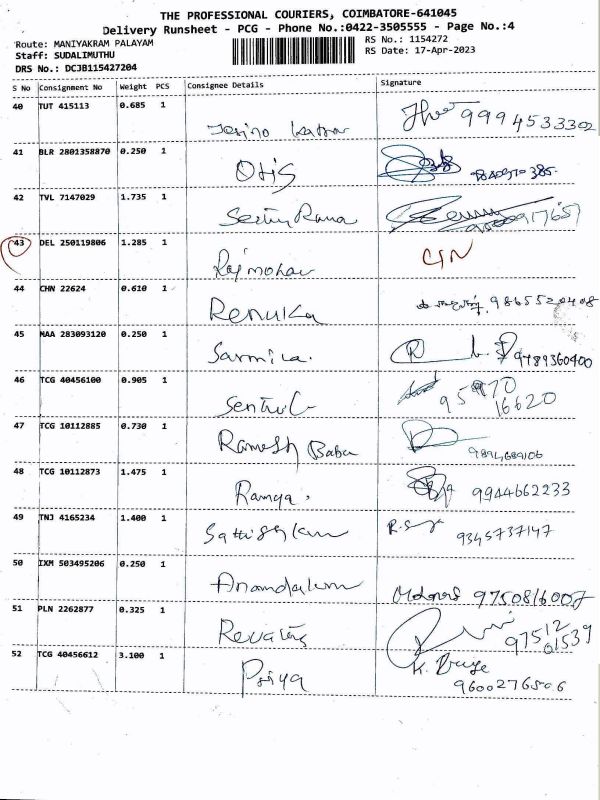 THE PROFESSIONAL COURIERS, COIMBATORE-641045
Delivery Runsheet - PCG - Phone No.:0422-3505555 - Page No.:4
Route: MANIYAKRAM PALAYAM
RS No.: 1154272
Staff: SUDALIMUTHU
RS Date: 17-Apr-2023
DRS No.: DCJB115427204
S No Consignment No Weight PCS Consignee Details Signature
40 TUT 415113 0.685 1 9994533302
41 BLR 2801358870 0.250 1 Otis
42 TVL 7147029 1.735 1
43 DEL 250119806 1.285 1 Rajmohan
44 CHN 22624 0.610 1 Renuka 9865520408
45 MAA 283093120 0.250 1 Sarmila. 9789360400
46 TCG 40456100 0.905 1 Senthil 95970
16620
47 TCG 10112885 0.730 1 Ramesh Babu 9894689106
48 TCG 10112873 1.475 1 Ramya. 9944662233
49 TNJ 4165234 1.400 1 9345737147
50 IXM 503495206 0.250 1 9750816007
51 PLN 2262877 0.325 1 Revathy 97512
01539
52 TCG 40456612 3.100 1 Priya
9600276506